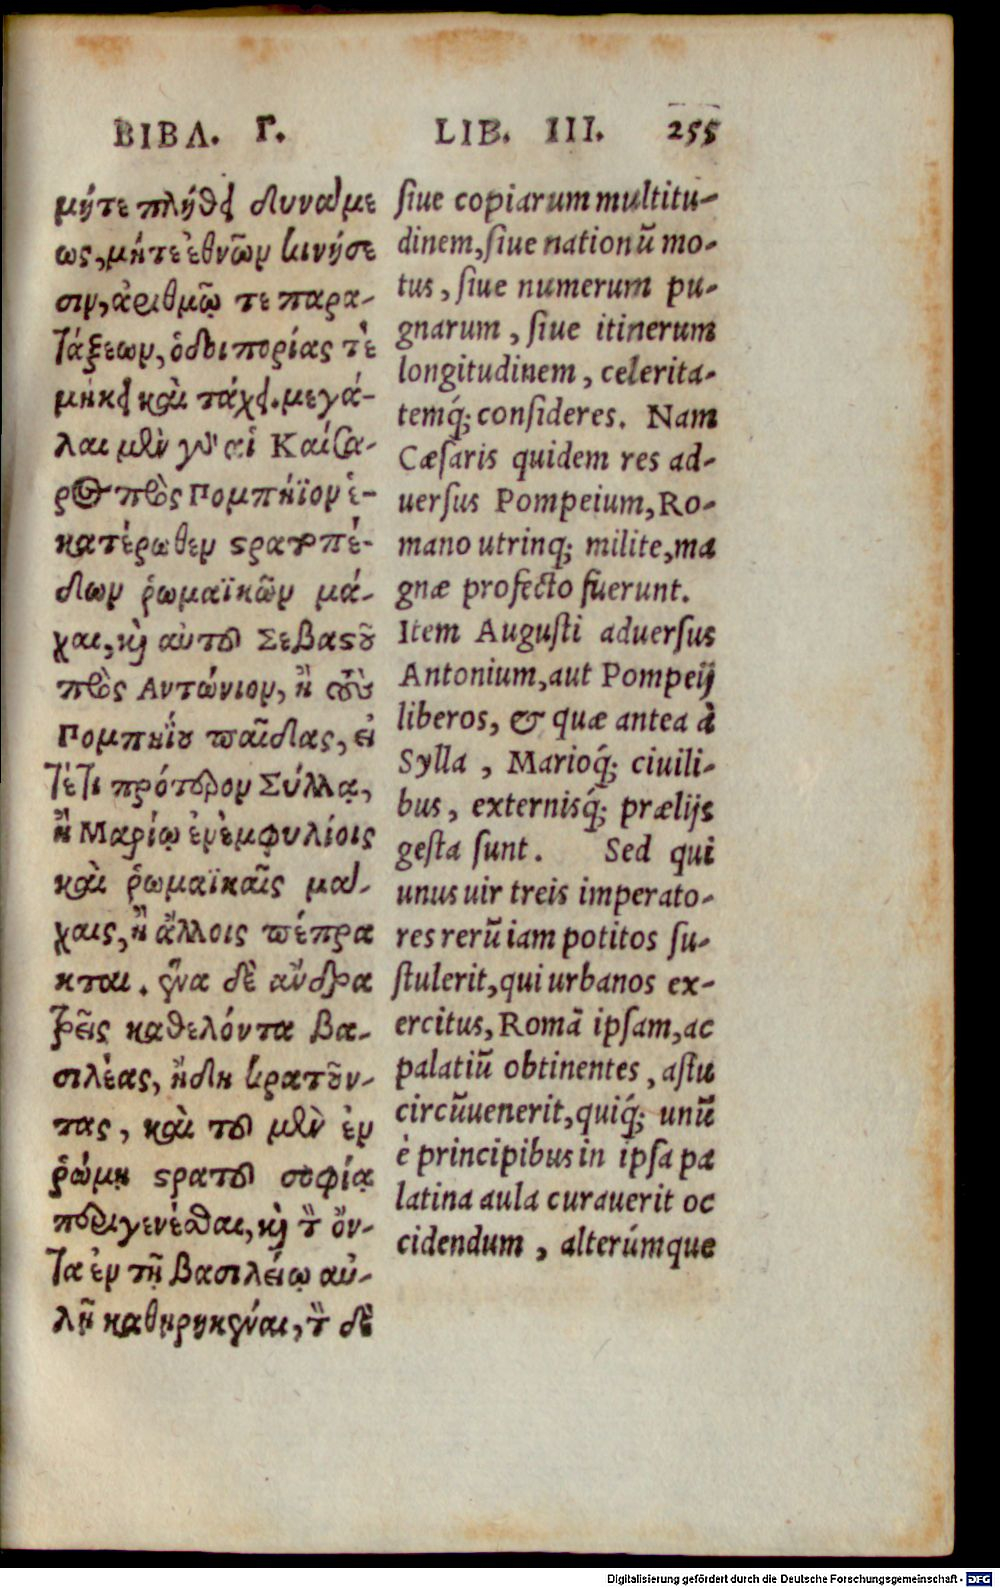 ΒΙΒΛ. Γ.
μήτε πλήθει δυνάμε
ως, μήτε ἐθνῶν κινήσε
σιν, ἀριθμῷ τε παρα-
τάξεων, ὁδοιπορίας τὲ
μήκει καὶ τάχει. μεγά-
λαι μὲν γὰρ αἱ Καίσα-
ρος πρὸς Πομπήϊον ἑ-
κατέρωθεν στρατοπέ-
δων ῥωμαϊκῶν μά-
χαι, καὶ αὐτοῦ Σεβαστοῦ
πρὸς Αντώνιον, ἢ τοὺς
Πομπηΐου παῖδας, εἰ
τέ τι πρότερον Σύλλᾳ,
ἢ Μαρίῳ ἐν ἐμφυλίοις
καὶ ῥωμαϊκαῖς μά-
χαις, ἢ ἄλλοις πέπρα
κται. ἕνα δὲ ἄνδρα
τρεῖς καθελόντα βα-
σιλέας, ἤδη κρατοῦν-
τας, καὶ τοῦ μὲν ἐν
ῥώμῃ στρατοῦ σοφίᾳ
περιγενέσθαι, καὶ τὸν ὄν-
τα ἐν τῇ βασιλείῳ αὐ-
λῇ καθῃρηκέναι, τὸν δὲ
LIB. III. 255
siue copiarum multitu-
dinem, siue nationũ mo-
tus, siue numerum pu-
gnarum, siue itinerum
longitudinem, celerita-
temq́; consideres. Nam
Cæsaris quidem res ad-
uersus Pompeium, Ro-
mano utrinq; milite, ma
gnæ profecto fuerunt.
Item Augusti aduersus
Antonium, aut Pompeij
liberos, & quæ antea à
Sylla, Marioq́; ciuili-
bus, externisq́; prælijs
gesta sunt. Sed qui
unus uir treis imperato-
res rerũ iam potitos su-
stulerit, qui urbanos ex-
ercitus, Romã ipsam, ac
palatiũ obtinentes, astu
circũuenerit, quiq́; unũ
è principibus in ipsa pa
latina aula curauerit oc
cidendum, alterúmque
Digitalisierung gefördert durch die Deutsche Forschungsgemeinschaft - DFG